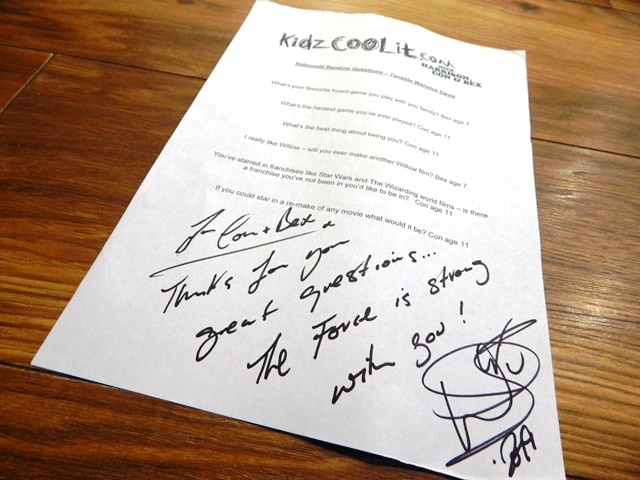 Kidz COOLit.com
WITH
HARRISON,
CON & BEX
Kidzcoolit Random Questions – Tenable Warwick Davis
What's your favourite board game you play with you family? Bex age 7
What's the hardest game you've ever played? Con age 11
What's the best thing about being you? Con age 11
I really like Willow – will you ever make another Willow film? Bex age 7
You've starred in franchises like Star Wars and The Wizarding world films – is there
a franchise you've not been in you'd like to be in? Con age 11
If you could star in a re-make of any movie what would it be? Con age 11
To Con + Bex x
Thanks for you
great questions...
The Force is strong
with you!